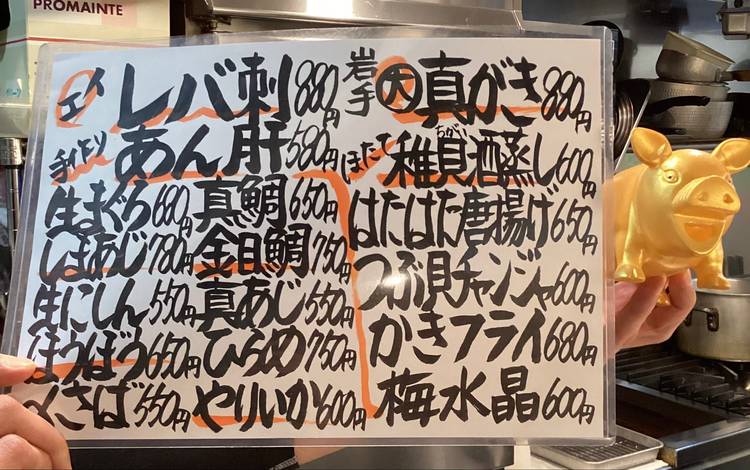 PROMAINTE
エイ レバ刺 880円
手作り あん肝 580円
生まぐろ 680円 真鯛 650円
しまあじ 780円 金目鯛 750円
生にしん 550円 真あじ 550円
ほうぼう 650円 ひらめ 750円
〆さば 550円 やりいか 600円
岩手 大 真がき 880円
ほたて 稚貝酒蒸し 600円
ちがい
はたはた唐揚げ 650円
つぶ貝チャンジャ 600円
かきフライ 680円
梅水晶 600円